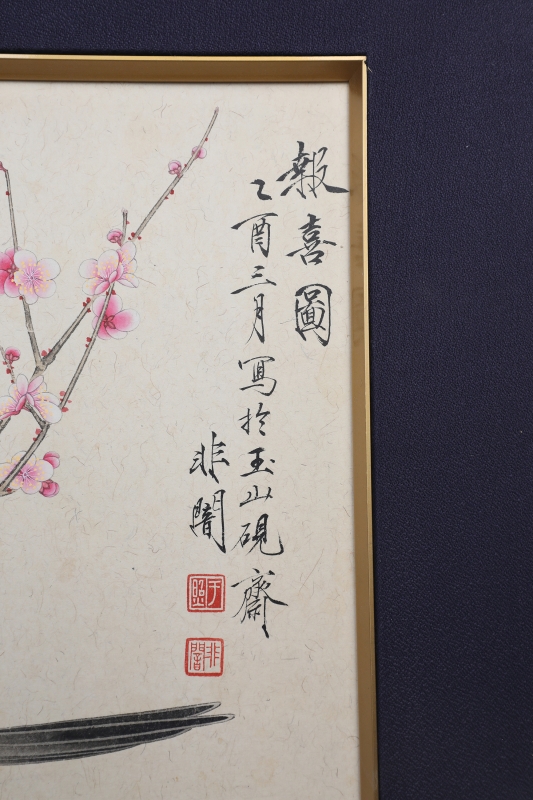 報喜圖
乙酉三月寫於玉山硯齋
非闇
于照
非闇